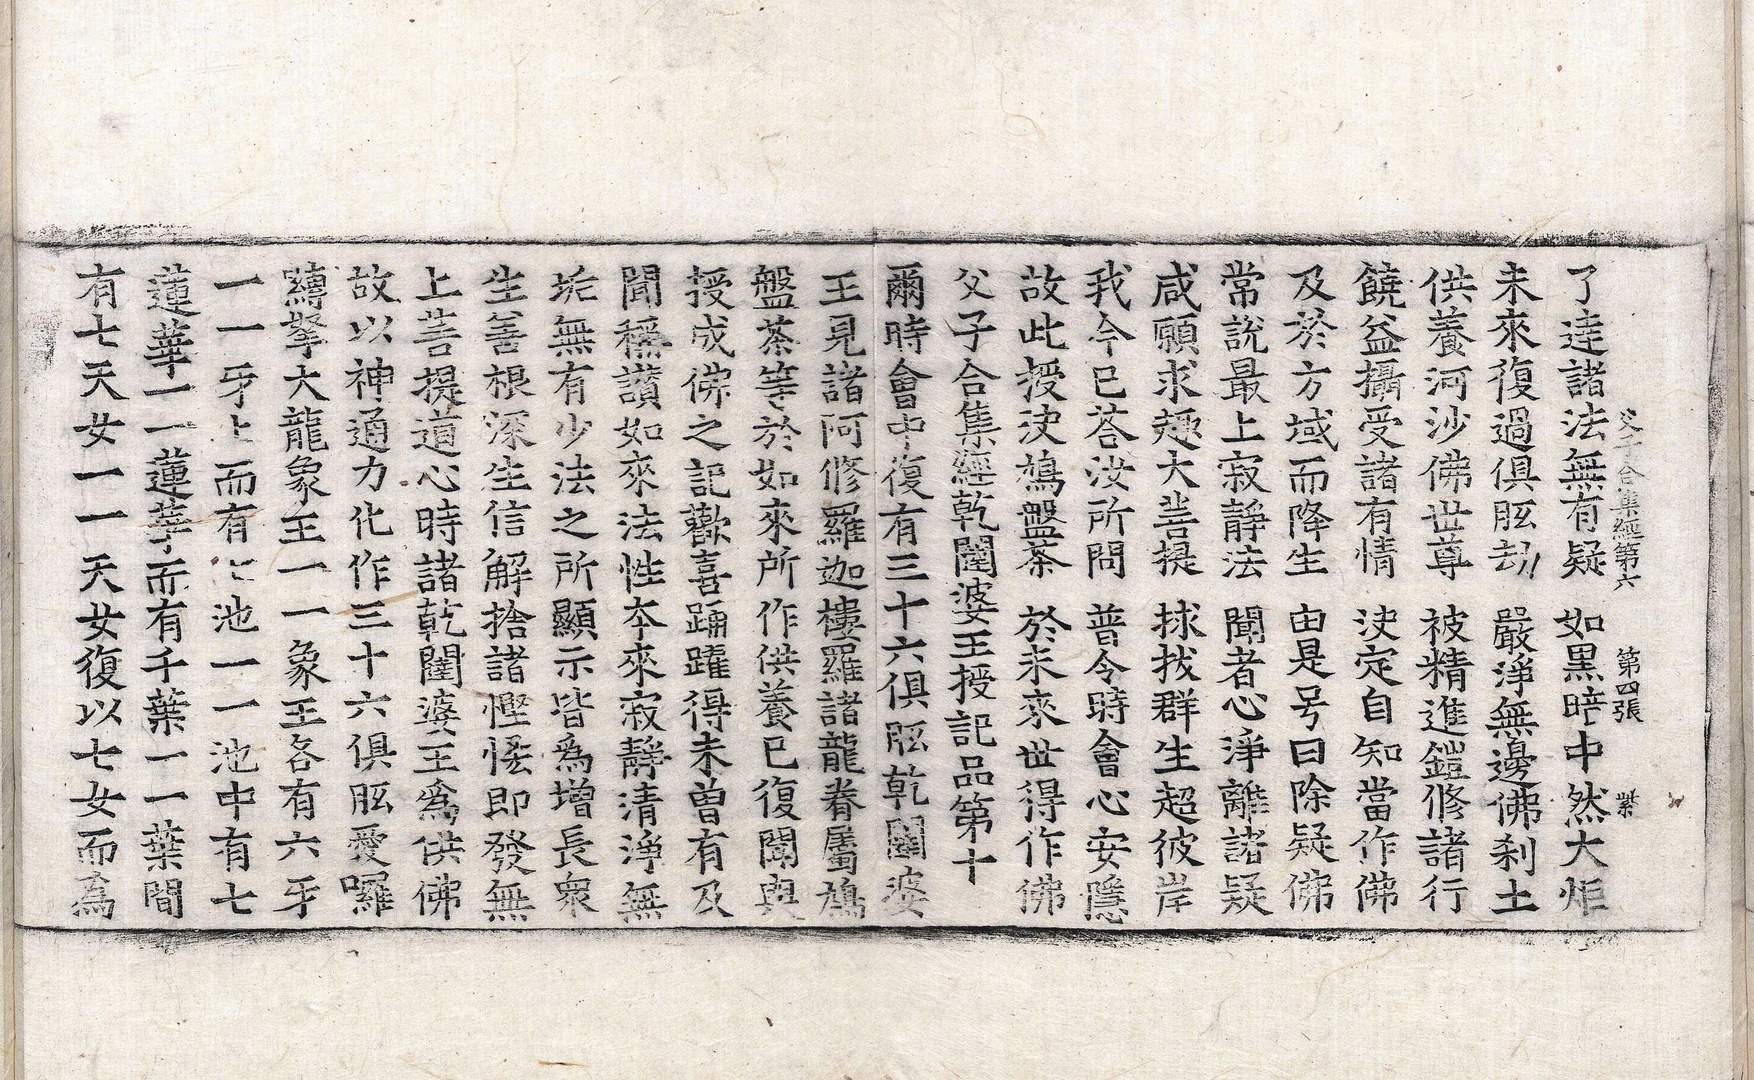 父子合集經第六 第四張 紫
了達諸法無有疑 如黑暗中然大炬
未來復過俱胝劫 嚴淨無邊佛刹土
供養河沙佛世尊 被精進鎧修諸行
饒益攝受諸有情 決定自知當作佛
及於方域而降生 由是号曰除疑佛
常說最上寂靜法 聞者心淨離諸疑
咸願求趣大菩提 捄拔群生超彼岸
我今已荅汝所問 普令時會心安隱
故此授決鳩盤茶 於未來世得作佛
父子合集經乾闥婆王授記品第十
爾時會中復有三十六俱胝乾闥婆
王見諸阿修羅迦樓羅諸龍眷屬鳩
盤茶等於如來所作供養已復聞與
授成佛之記歡喜踊躍得未曾有及
聞稱讚如來法性本來寂靜清淨無
垢無有少法之所顯示皆爲增長衆
生善根深生信解捨諸慳恡即發無
上菩提道心時諸乾闥婆王爲供佛
故以神通力化作三十六俱胝愛囉
嚩拏大龍象王一一象王各有六牙
一一牙上而有七池一一池中有七
蓮華一一蓮華而有千葉一一葉間
有七天女一一天女復以七女而為